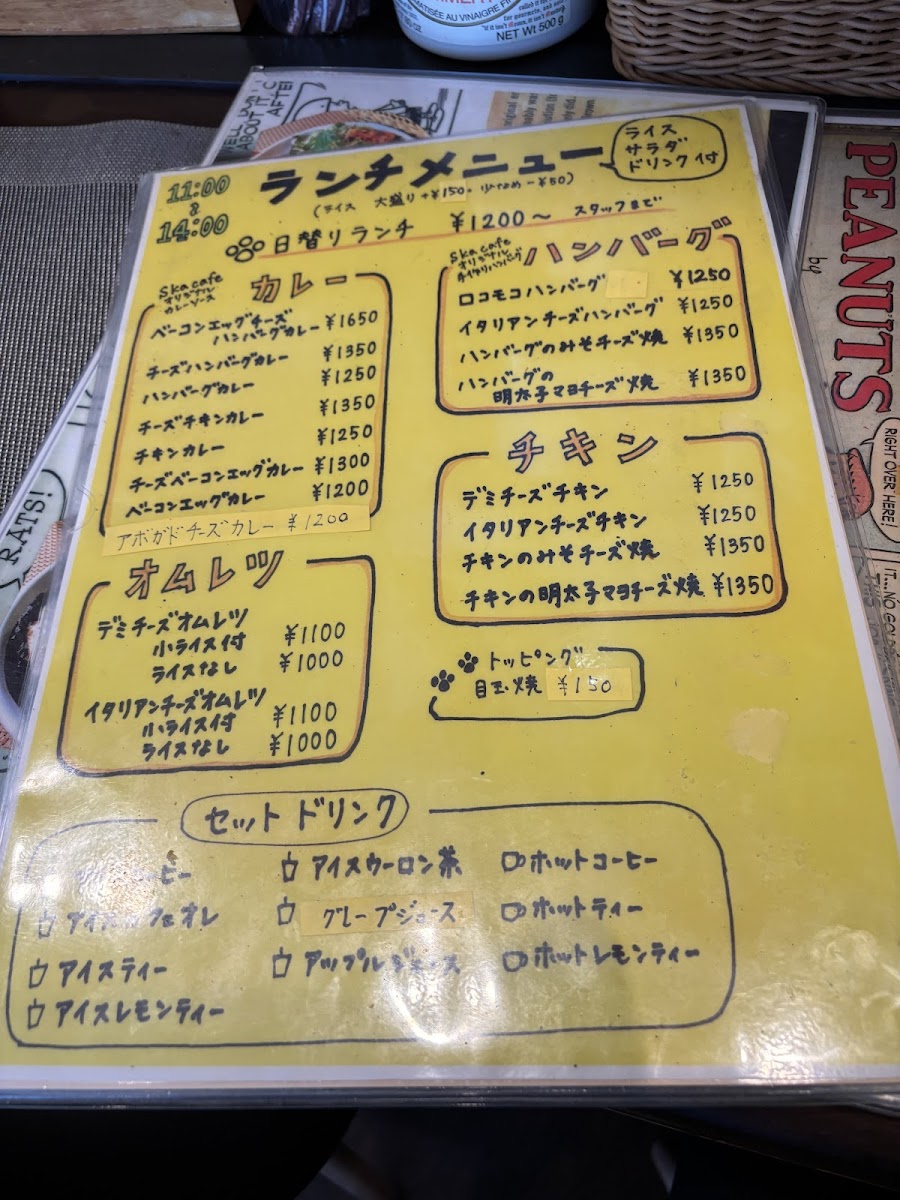 NET Wt 500 g
ランチメニュー
ライス
サラダ
ドリンク付
11:00
~
14:00
(ライス 大盛り+¥150・少なめ-¥50)
日替りランチ ¥1200~ スタッフまで
Ska cafe
オリジナル
カレーソース
カレー
ベーコンエッグチーズ
ハンバーグカレー ¥1650
チーズハンバーグカレー ¥1350
ハンバーグカレー ¥1250
チーズチキンカレー ¥1350
チキンカレー ¥1250
チーズベーコンエッグカレー ¥1300
ベーコンエッグカレー ¥1200
アボガドチーズカレー ¥1200
Ska cafe
オリジナル
手作りハンバーグ
ハンバーグ
ロコモコハンバーグ ¥1250
イタリアンチーズハンバーグ ¥1250
ハンバーグのみそチーズ焼 ¥1350
ハンバーグの
明太子マヨチーズ焼 ¥1350
チキン
デミチーズチキン ¥1250
イタリアンチーズチキン ¥1250
チキンのみそチーズ焼 ¥1350
チキンの明太子マヨチーズ焼 ¥1350
オムレツ
デミチーズオムレツ
小ライス付 ¥1100
ライスなし ¥1000
イタリアンチーズオムレツ
小ライス付 ¥1100
ライスなし ¥1000
トッピング
目玉焼 ¥150
セットドリンク
コーヒー
アイスカフェオレ
アイスティー
アイスレモンティー
アイスウーロン茶
グレープジュース
アップルジュース
ホットコーヒー
ホットティー
ホットレモンティー
PEANUTS
by
RIGHT OVER HERE!
RATS!
ABOUT IT